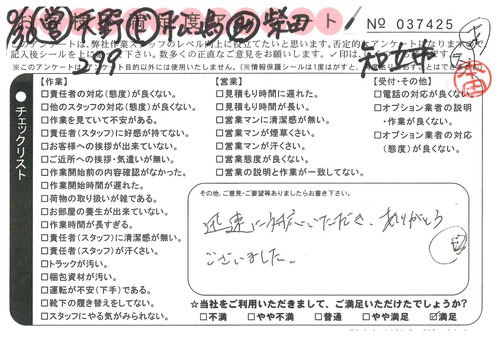 アンケート
№ 037425
このアンケートは、弊社作業スタッフのレベル向上に役立てたいと思います。否定的なアンケートになりますので
記入後シールを上に
知立市
【作業】
□責任者の対応(態度)が良くない。
□他のスタッフの対応(態度)が良くない。
□作業を見ていて不安がある。
□責任者(スタッフ)に好感が持てない。
□お客様への挨拶が出来ていない。
□ご近所への挨拶・気遣いが無い。
□作業開始前の内容確認がなかった。
□作業開始時間が遅れた。
□荷物の取り扱いが雑である。
□お部屋の養生が出来ていない。
□作業時間が長すぎる。
□責任者(スタッフ)に清潔感が無い。
□責任者(スタッフ)が汗くさい。
□トラックが汚い。
□梱包資材が汚い。
□運転が不安(下手)である。
□靴下の履き替えをしてない。
□スタッフにやる気がみられない。
【営業】
□見積もり時間に遅れた。
□見積もり時間が長い。
□営業マンに清潔感が無い。
□営業マンが煙草くさい。
□営業マンが汗くさい。
□営業態度が良くない。
□営業の説明と作業が一致してない。
【受付・その他】
□電話の対応が良くない。
□オプション業者の説明
・作業が良くない。
□オプション業者の対応
(態度)が良くない。
チェックリスト
その他、ご意見・ご要望等ありましたらお書き下さい。
迅速に対応いただき、ありがとう
ございました。
☆当社をご利用いただきまして、ご満足いただけたでしょうか?
□不満 □やや不満 □普通 □やや満足 ☑満足